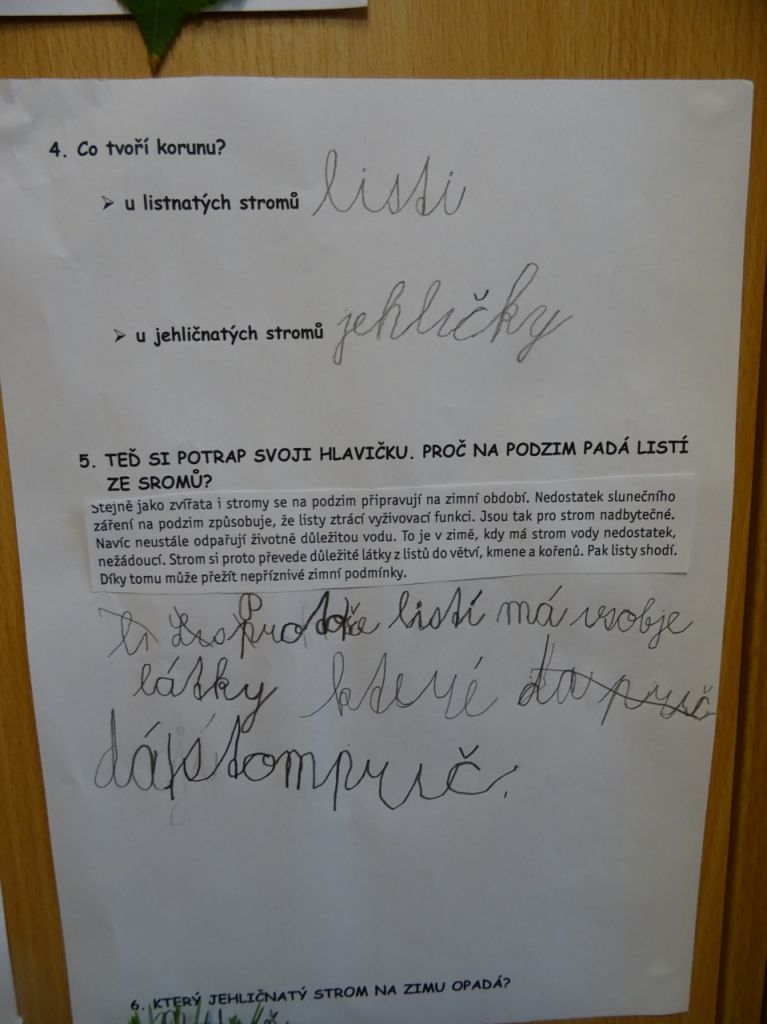 4. Co tvoří korunu?
➢ u listnatých stromů listi
➢ u jehličnatých stromů jehličky
5. TEĎ SI POTRAP SVOJI HLAVIČKU. PROČ NA PODZIM PADÁ LISTÍ
ZE SROMŮ?
Stejně jako zvířata i stromy se na podzim připravují na zimní období. Nedostatek slunečního
záření na podzim způsobuje, že listy ztrácí vyživovací funkci. Jsou tak pro strom nadbytečné.
Navíc neustále odpařují životně důležitou vodu. To je v zimě, kdy má strom vody nedostatek,
nežádoucí. Strom si proto převede důležité látky z listů do větví, kmene a kořenů. Pak listy shodí.
Díky tomu může přežít nepříznivé zimní podmínky.
listí má vsobje
látky které
6. KTERÝ JEHLIČNATÝ STROM NA ZIMU OPADÁ?